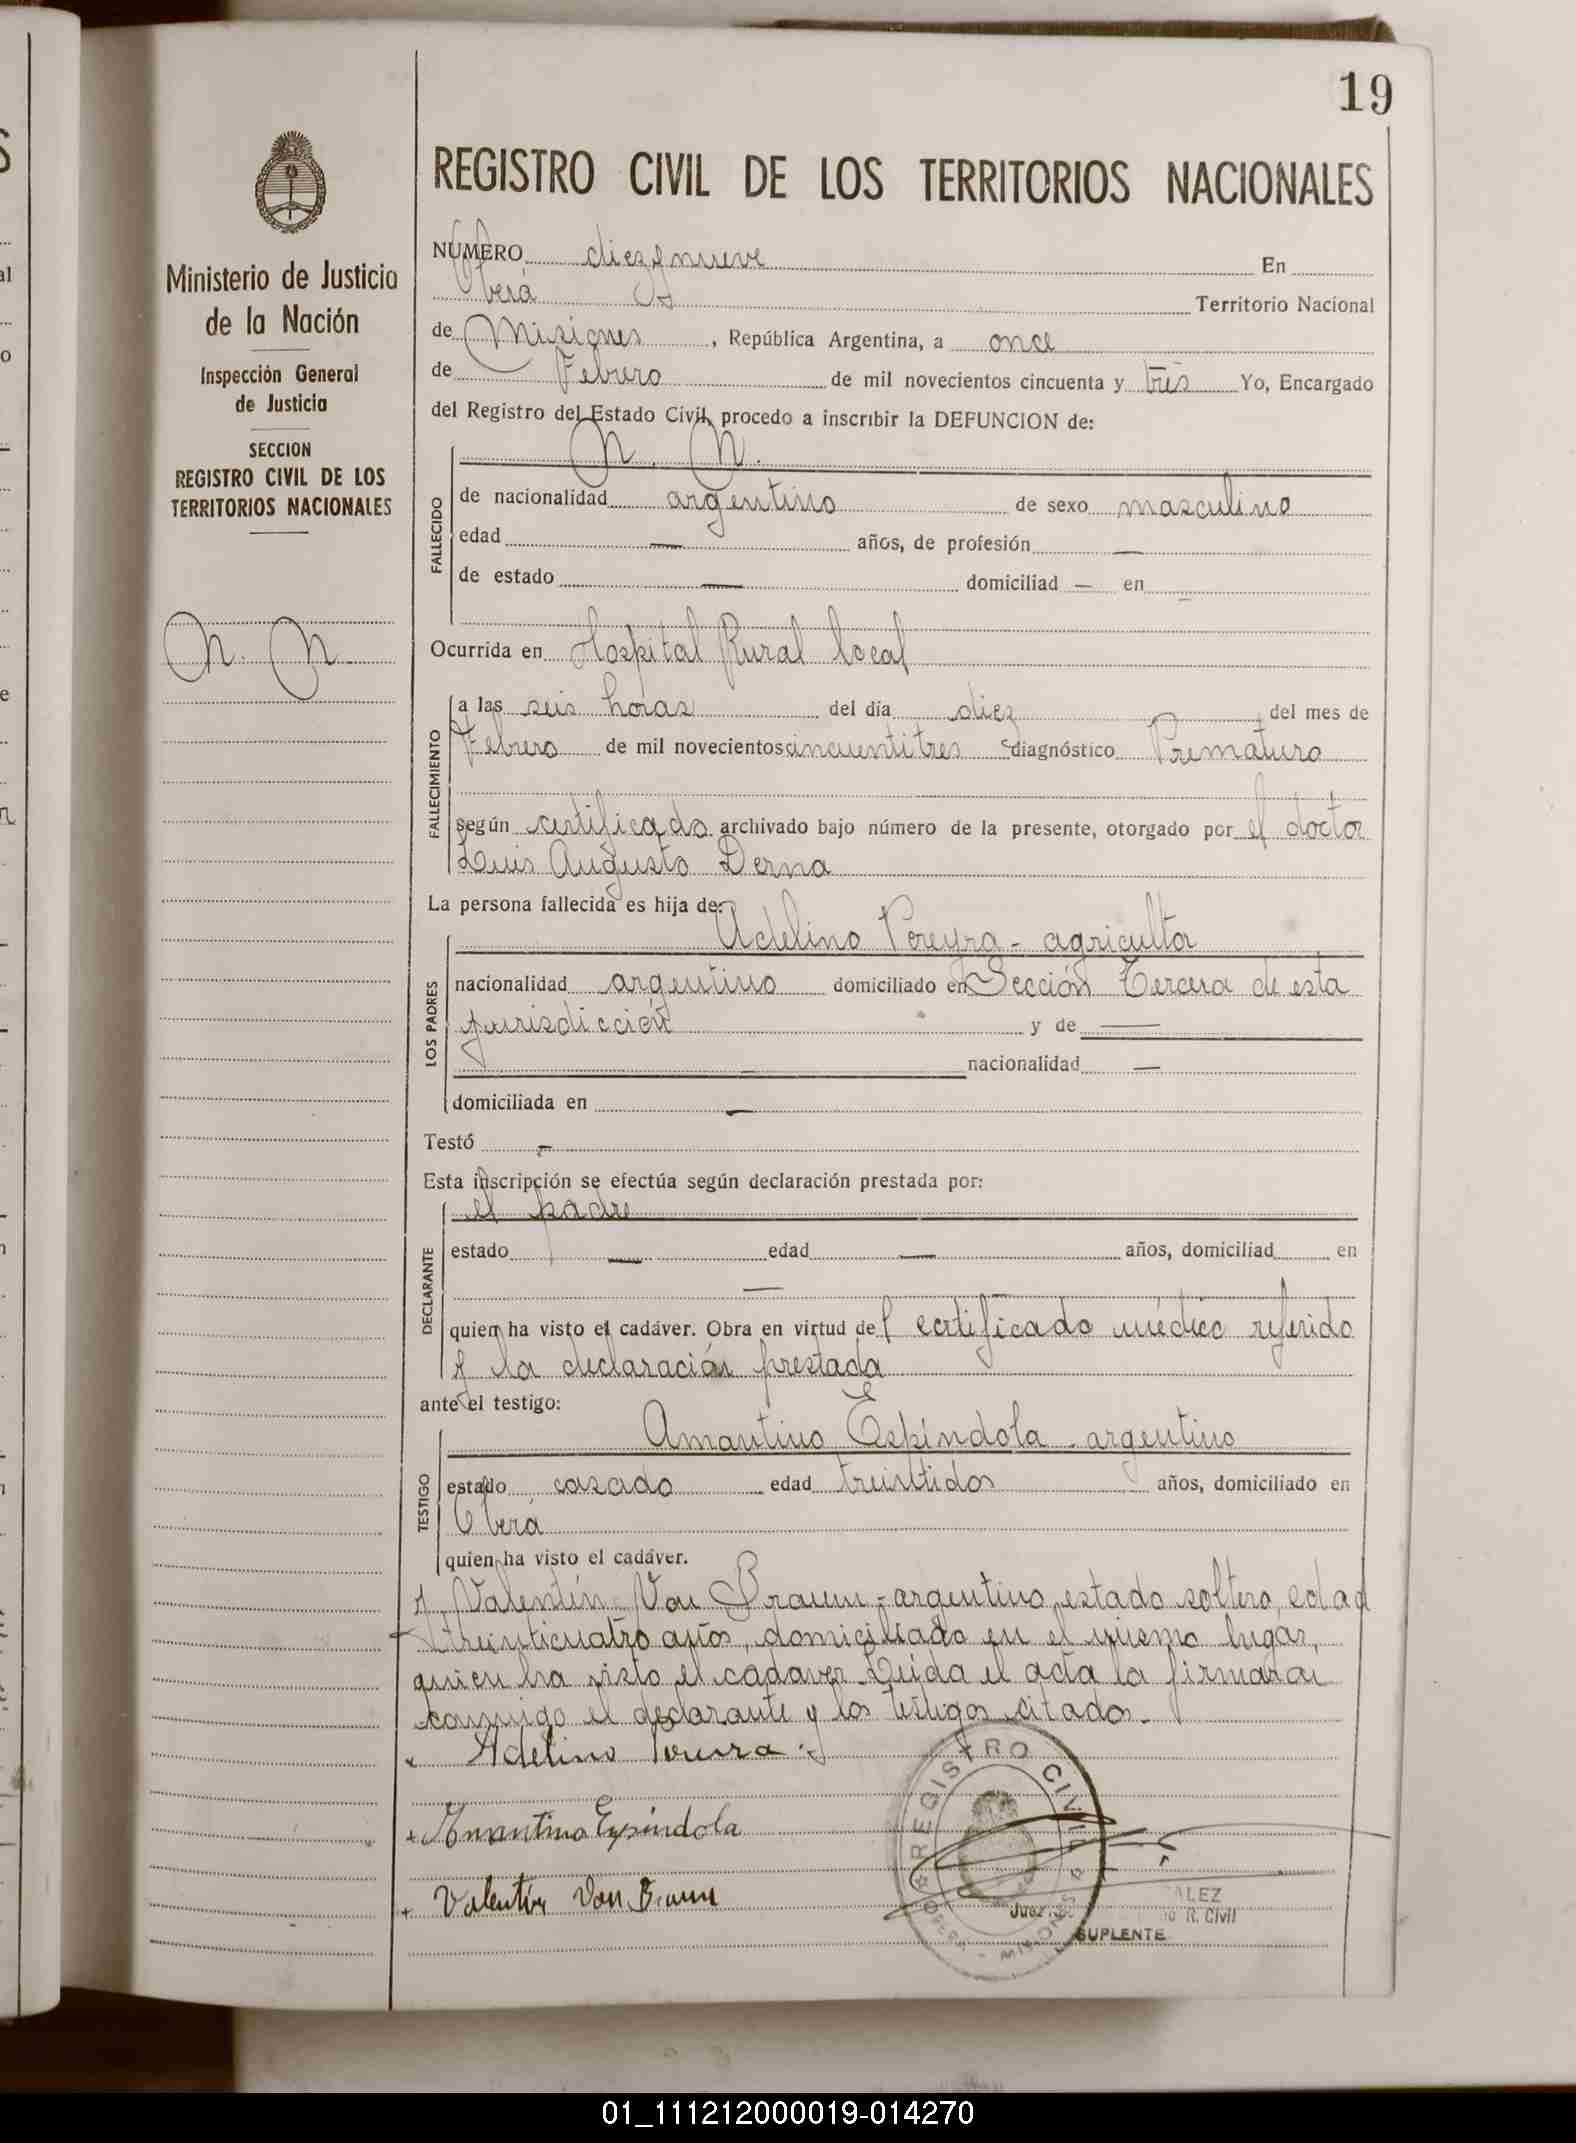 19
REGISTRO CIVIL DE LOS TERRITORIOS NACIONALES
Ministerio de Justicia
de la Nación
Inspección General
de Justicia
SECCION
REGISTRO CIVIL DE LOS
TERRITORIOS NACIONALES
N. N.
NUMERO diez y nueve En
Oberá Territorio Nacional
de Misiones, República Argentina, a once
de Febrero de mil novecientos cincuenta y tres Yo, Encargado
del Registro del Estado Civil, procedo a inscribir la DEFUNCION de:
N. N.
FALLECIDO
de nacionalidad argentino de sexo masculino
edad — años, de profesión —
de estado — domiciliad — en —
Ocurrida en Hospital Rural local
FALLECIMIENTO
a las seis horas del día diez del mes de
Febrero de mil novecientos cincuentitres diagnóstico Prematuro
según certificado archivado bajo número de la presente, otorgado por el doctor
Luis Augusto Derna
La persona fallecida es hija de:
LOS PADRES
Adelino Pereyra - agricultor
nacionalidad argentino domiciliado en Sección Tercera de esta
jurisdicción y de —
— nacionalidad —
domiciliada en —
Testó —
Esta inscripción se efectúa según declaración prestada por:
DECLARANTE
el padre
estado — edad — años, domiciliad en
—
quien ha visto el cadáver. Obra en virtud del certificado médico referido
y la declaración prestada
ante el testigo:
TESTIGO
Amantino Espíndola - argentino
estado casado edad treintidos años, domiciliado en
Oberá
quien ha visto el cadáver.
y Valentín Von Braun - argentino, estado soltero, edad
treinticuatro años, domiciliado en el mismo lugar,
quien ha visto el cadaver. Leida el acta la firmaran
conmigo el declarante y los testigos citados.-
Adelino
+ Amantino Espíndola
+ Valentin Von Braun
REGISTRO CIVIL
OBERA - MISIONES
ALEZ
Juez R. Civil
SUPLENTE
01_111212000019-014270